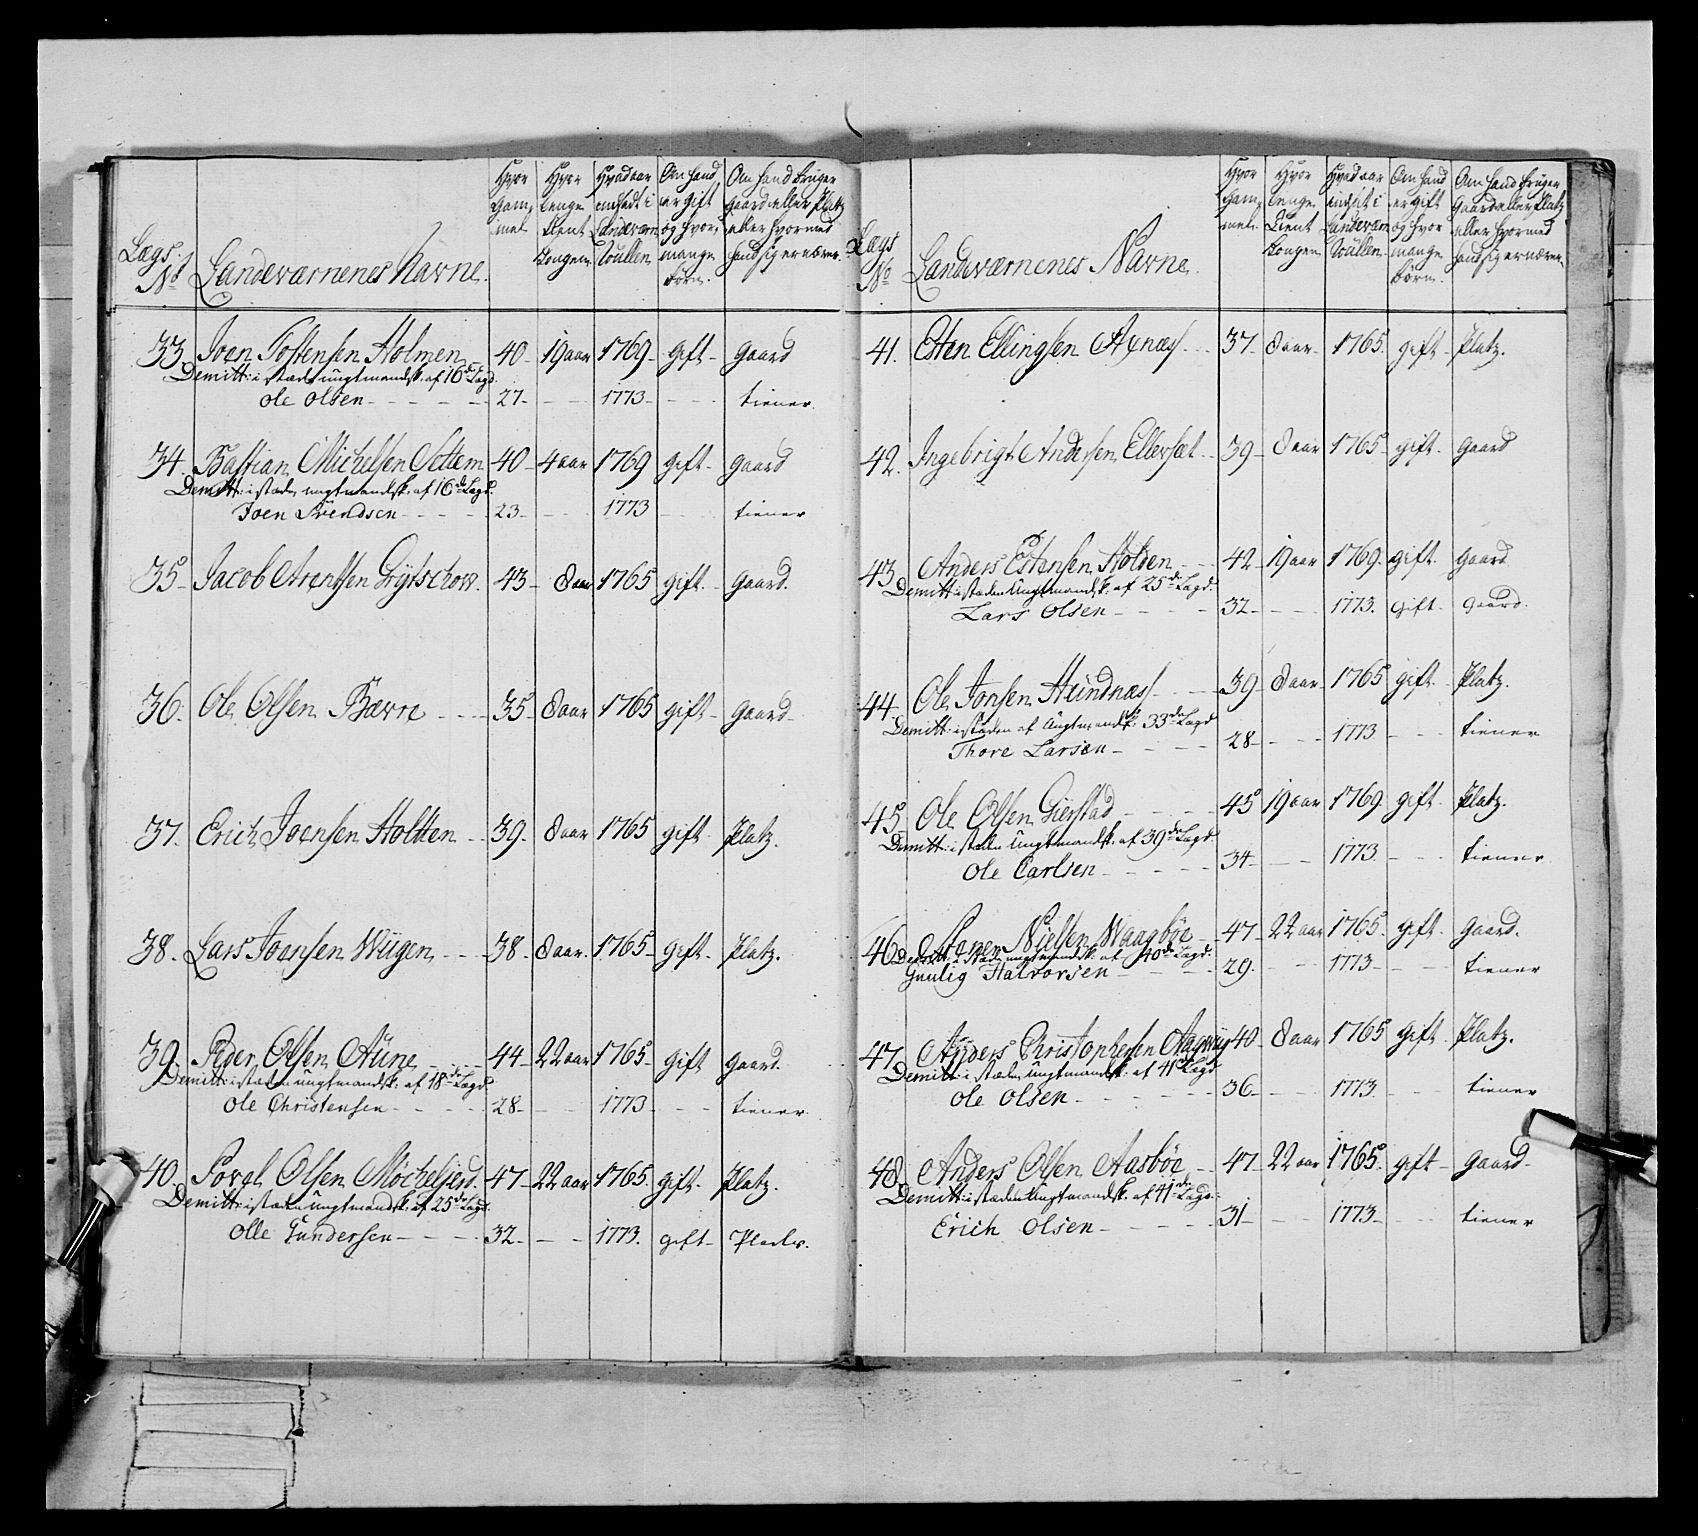 Lægs No
Landeværnenes Navne.
Hvor gammel
Hvor lenge tient Kongen
Hvad aar indsadt i Landeværn Roullen
Om hand er gift og hvor mange børn.
Om hand bruger gaard eller Platz eller hvormed hand sig ernærer.
33. Joen Tostensen Holmen - 40 - 19 aar 1769 - gift - gaard
Demitt: i stæden ungtmandsk. af 16de Lægd.
Ole Olsen - - - - - 27 - - - 1773 - - - - tiener.
34. Bastian Michelsen Settem 40 - 4 aar 1769 gift - gaard
Demitt: i stæden ungtmandsk. af 16de Lægd.
Joen Svendsen - - - - 23 - - - 1773 - - - tiener
35 - Jacob Arentsen 43 - 8 aar 1765 gift - gaard.
36. Ole Olsen Bævre - - - 35 - 8 aar 1765 gift - gaard -
37. Erich Joensen Holtten - - 39. 8 aar 1765 gift - Platz.
38. Lars Joensen Wiigen - - - 38. 8 aar. 1765 - gift. Platz.
39. Peder Olsen Aune - - - 44 - 22 aar 1765 - gift gaard.
Demitt: i stæden ungtmandsk. af 18de Lægd.
Ole Christensen - - - - 28 - - - 1773 - - - tiener.
40. Povel Olsen 47 - 22 aar 1765. gift. Platz.
Demitt: i stæden ungtmandsk. af 25de Lægd.
Olle Gundersen - - - - 32 - - - 1773. gift -
Lægs No
Landeværnenes Navne.
Hvor gammel
Hvor lenge tient Kongen
Hvad aar indsat i Landeværn Roullen.
Om hand er gift og hvor mange børn.
Om hand bruger gaard eller Platz eller hvormed hand sig ernærer.
41. Esten Ellingsen - - - 37 - 8 aar - 1765. gift - Platz.
42. Ingebrigt Andersen Ellersæt - 39 - 8 aar 1765 - gift - gaard
43. Anders Estensen Holden - - 42 - 19 aar 1769. gift - gaard
Demitt: i stæden Ungtmandsk. af 25de Lægd.
Lars Olsen - - - - 32 - - - 1773. gift - gaard.
44. Ole Jonsen Hundnæss - - - 39 - 8 aar - 1765 gift - Platz.
Demitt: i stæden af Ungtmandsk. 33de Lægd
Thore Larsen - - - - 28 - - - 1773 - - - tiener
45. Ole Olsen Gierstad - - - - 45 19 aar 1769. gift - Platz.
Demitt: i stæden Ungtmandsk. af 39de Lægd.
Ole Carlsen - - - - - 34 - - - 1773. - - - tiener
46. Nielsen Waagbøe - 47 - 22 aar 1765. gift - gaard.
Demitt: i stæden ungtmandsk. af 40de Lægd.
Halvorsen - - - - 29. - - 1773 - - - tiener
47. Anders Christophersen 40 - 8 aar 1765 gift. Platz.
Demitt: i stæden Ungtmandsk. af 41de Lægd
Ole Olsen - - - - - - 36 - - - 1773. - - - tiener
48. Anders Olsen Aasbøe - - 47 - 22 aar 1765. gift - gaard -
Demitt: i stæden Ungtmandsk. af 41de Lægd.
Erich Olsen - - - - - 31 - - - 1773 - - - - tiener